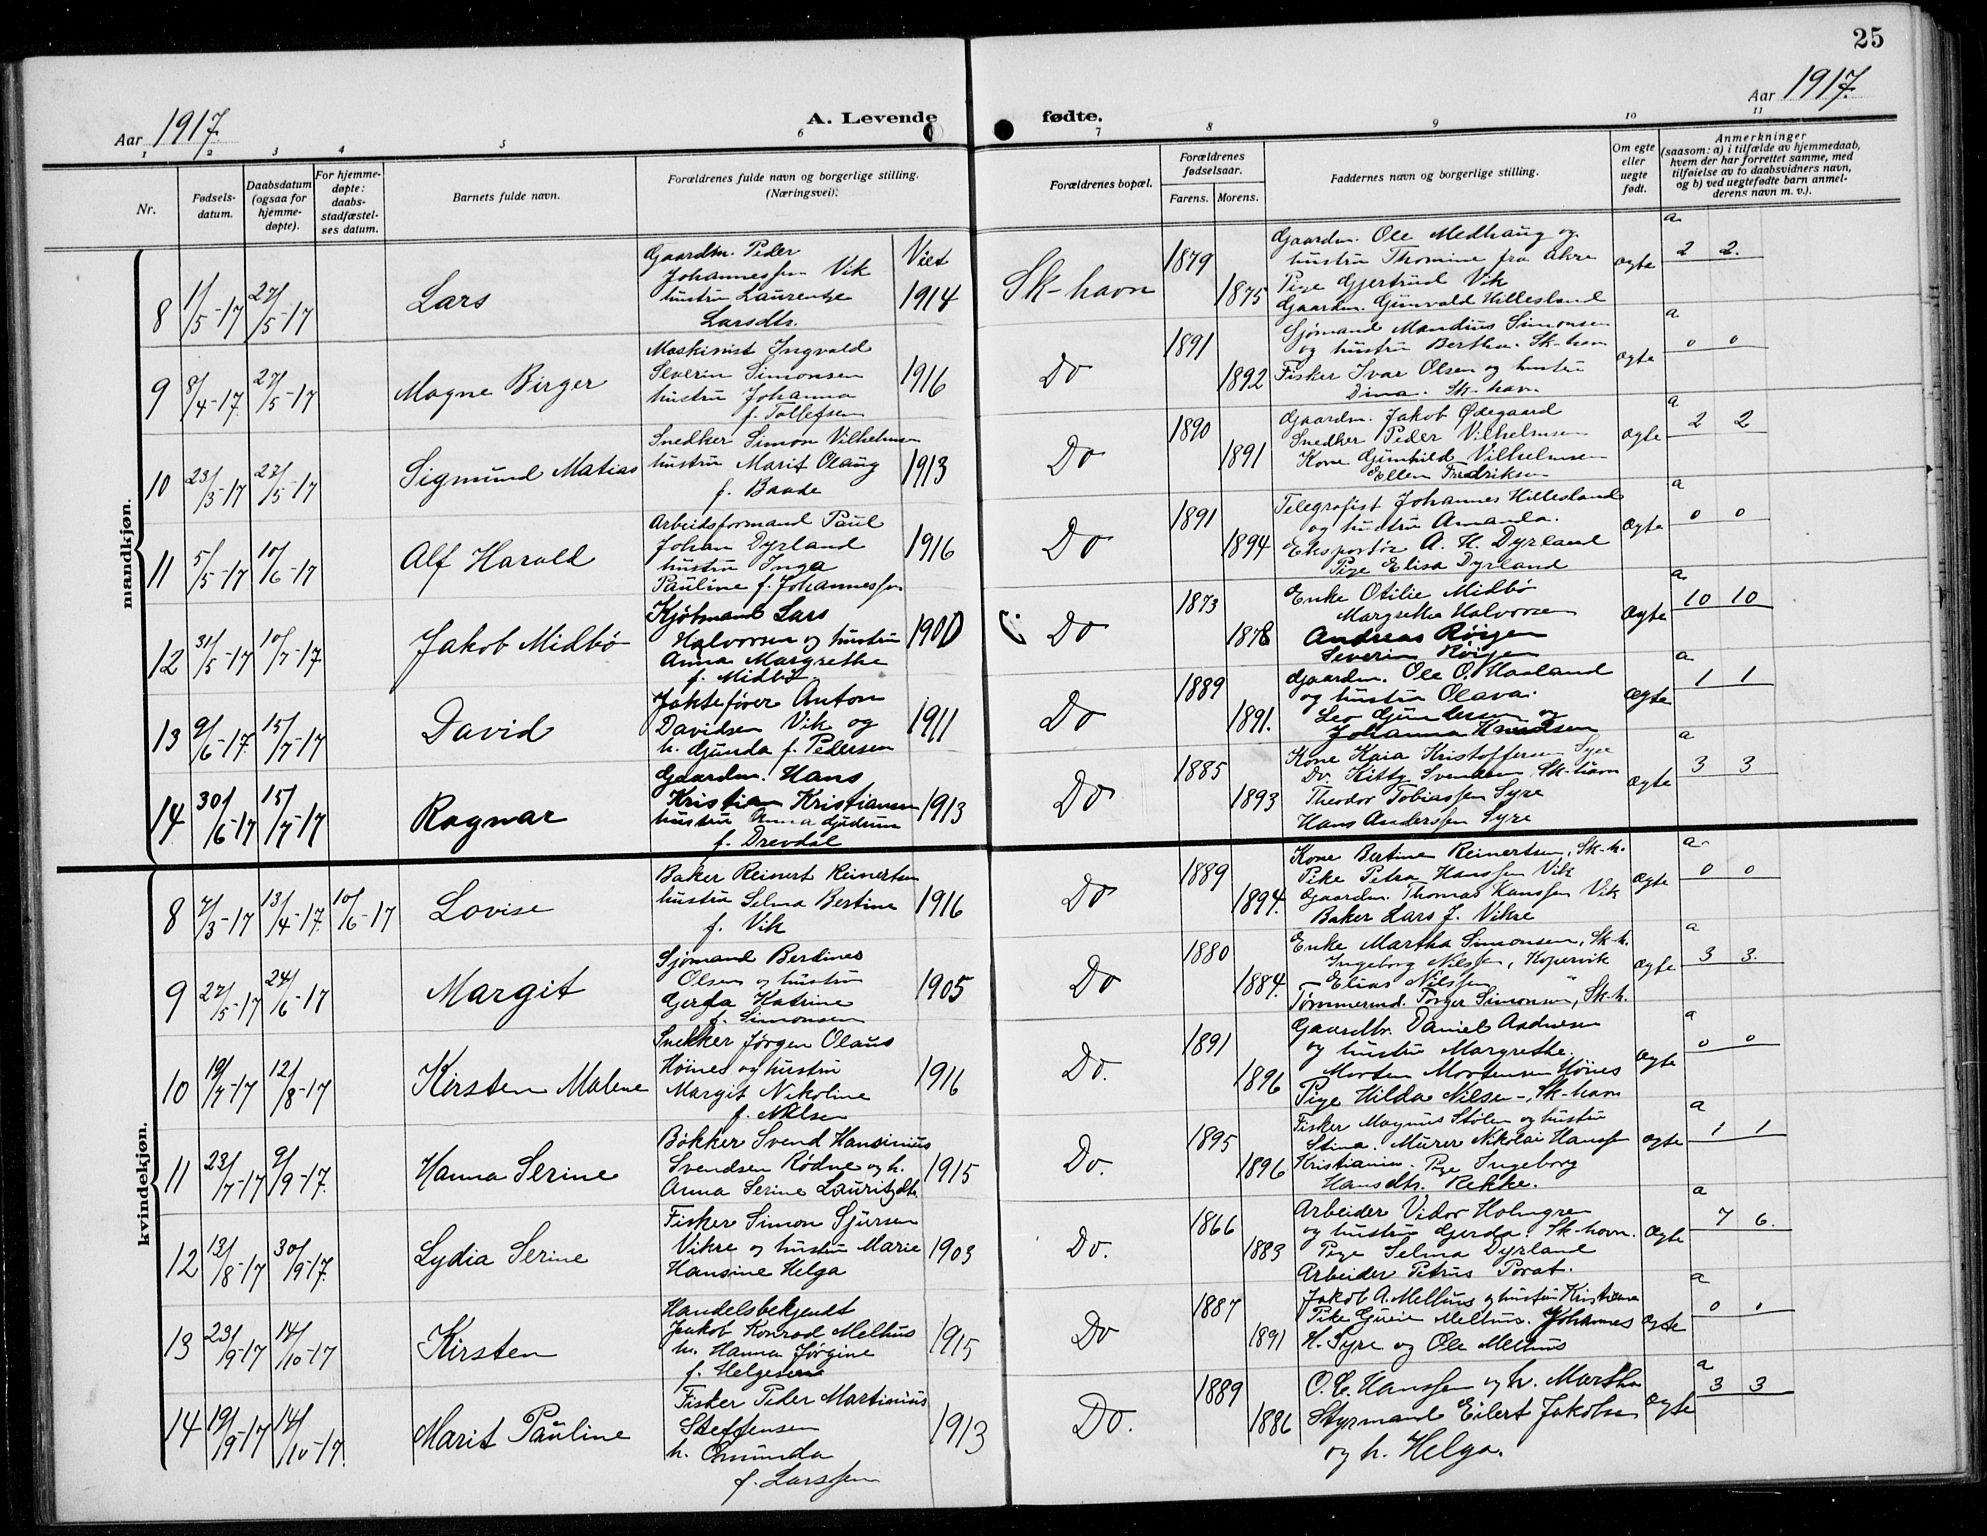 25
Aar 1917.
A. Levende fødte.
Aar 1917.
1 2 3 4 5 6 7 8 9 10 11
Nr.
Fødsels-
datum.
Daabsdatum
(ogsaa for
hjemme-
døpte).
For hjemme-
døpte:
daabs-
stadfæstel-
ses datum.
Barnets fulde navn.
Forældrenes fulde navn og borgerlige stilling.
(Næringsvei).
Forældrenes bopæl.
Forældrenes
fødselsaar.
Farens. Morens.
Faddernes navn og borgerlige stilling.
Om egte
eller
uegte
født.
Anmerkninger
(saasom: a) i tilfælde av hjemmedaab,
hvem der har forrettet samme, med
tilføielse av to daabsvidners navn,
og b) ved uegtefødte barn anmel-
derens navn m. v.).
mandkjøn.
8 1/5-17 27/5-17 Lars
Gaardm. Peder
Johannessen Vik
hustru Laurentze
Larsdtr.
Viet
1914
Sk-havn 1879 1875
Gaardm. Ole Medhaug og
hustru Thomine fra Akre
Pige Gjertrud Vik
Gaardm. Gunvald Hillesland
ægte a 2 2.
9 8/4-17 27/5-17 Magne Birger
Maskinist Ingvald
Severin Simonsen
hustru Johanna
f. Tollefsen
1916 Do 1891 1892
Sjømand Mandius Simonsen
og hustru Bertha. Sk-havn
Fisker Ivar Olsen og hustru
Dina. Sk-havn
ægte a 0 0
10 23/3-17 27/5-17 Sigmund Matias
Snedker Simon Vilhelmsen
hustru Marit Olaug
f. Baade
1913 Do 1890 1891
Gaardm. Jakob Ødegaard
Snedker Peder Vilhelmsen
Kone Gunhild Vilhelmsen
Ellen Fredriksen
ægte a 2 2
11 5/5-17 10/6-17 Alf Harald
Arbeidsformand Paul
Johan Dyrland
hustru Inga
Pauline f. Johannessen
1916 Do 1891 1894
Telegrafist Johannes Hillesland
og hustru Amanda.
Eksportør A. H. Dyrland
Pige Elisa Dyrland
ægte a 0 0
12 31/5-17 10/7-17 Jakob Midbø
Kjøbmand Lars
Halvorsen og hustru
Anna Margrethe
f. Midbø
1900 Do 1873 1878
Enke Otilie Midbø
Margrethe Halvorsen
Andreas Røigen
Severin Røigen
ægte a 10 10
13 9/6-17 15/7-17 David
Jaktefører Anton
Davidsen Vik og
h. Gunda f. Pedersen
1911 Do 1889 1891.
Gaardm. Ole O. Haaland
og hustru Olava.
Leo Gundersen og
Johanna Knudsen
ægte a 1 1
14 30/6-17 15/7-17 Ragnar
Gaardm. Hans
Kristian Kristiansen
hustru Anna Gudrun
f. Drevdal
1913 Do 1885 1893
Kone Kaia Kristoffersen Syre
Do. Kitty Svendsen, Sk-havn
Theodor Tobiassen Syre
Hans Anderssen Syre
ægte a 3 3
kvindekjøn.
8 7/3-17 13/4-17. 10/6-17 Lovise
Baker Reinert Reinertsen
hustru Selma Bertine
f. Vik
1916 Do 1889 1894.
Kone Bertine Reinertsen, Sk-h.
Pike Petra Hanssen Vik
Gaardm. Thomas Hanssen Vik
Baker Lars J. Vikre
ægte a 0 0
9 27/5-17 24/6-17 Margit
Sjømand Berdines
Olsen og hustru
Gerda Katrine
f. Simonsen
1905 Do 1880 1884.
Enke Martha Simonsen, Sk-h.
Ingeborg Nilssen, Kopervik
Elias Nilssen "
Tømmermd. Torger Simonsen, Sk-h.
ægte a 3 3.
10 19/7-17 12/8-17 Kirsten Malene
Snekker Jørgen Olaus
Høines og hustru
Margit Nikoline
f. Nilsen
1916 Do. 1891 1896
Gaardbr. Daniel Andresen
og hustru Margrethe.
Morten Mortensen Høines
Pige Hilda Nilsen -, Sk-havn
ægte a 0 0
11 23/7-17 9/9-17. Hanna Serine
Bøkker Svend Hansinius
Svendsen Rødne og h.
Anna Serine Lauritzdtr.
1915 Do. 1895 1896
Fisker Magnus Stølen og hustru
Stina. Murer Nikolai Hanssen
Kristianien. Pige Ingeborg
Hansdtr. Rekke.
ægte a 1 1
12 13/8-17 30/9-17. Lydia Serine
Fisker Simon Sjursen
Vikre og hustru Marie
Hansine Helga
1903 Do. 1866 1883
Arbeider Vidor Holmgren
og hustru Gerda. Sk-havn.
Pige Selma Dyrland
Arbeider Petrus Porat.
ægte a 7 6.
13 23/9-17 14/10-17 Kirsten
Handelsbetjendt
Jakob Konrad Melhus
h. Hanna Jørgine
f. Helgesen
1915 Do 1887 1891
Jakob A. Melhus og hustru Kristiane
Pike Guri Melhus. Johannes
H. Syre og Ole Melhus
ægte a 0 0
14 19/9-17 14/10-17. Marit Pauline
Fisker Peder Martinius
Steffensen
h. Omunda
f. Larssen
1913 Do. 1889 1886
O. C. Hanssen og h. Martha
Styrmand Eilert Jakobsen
og h. Helga.
ægte a 3 3